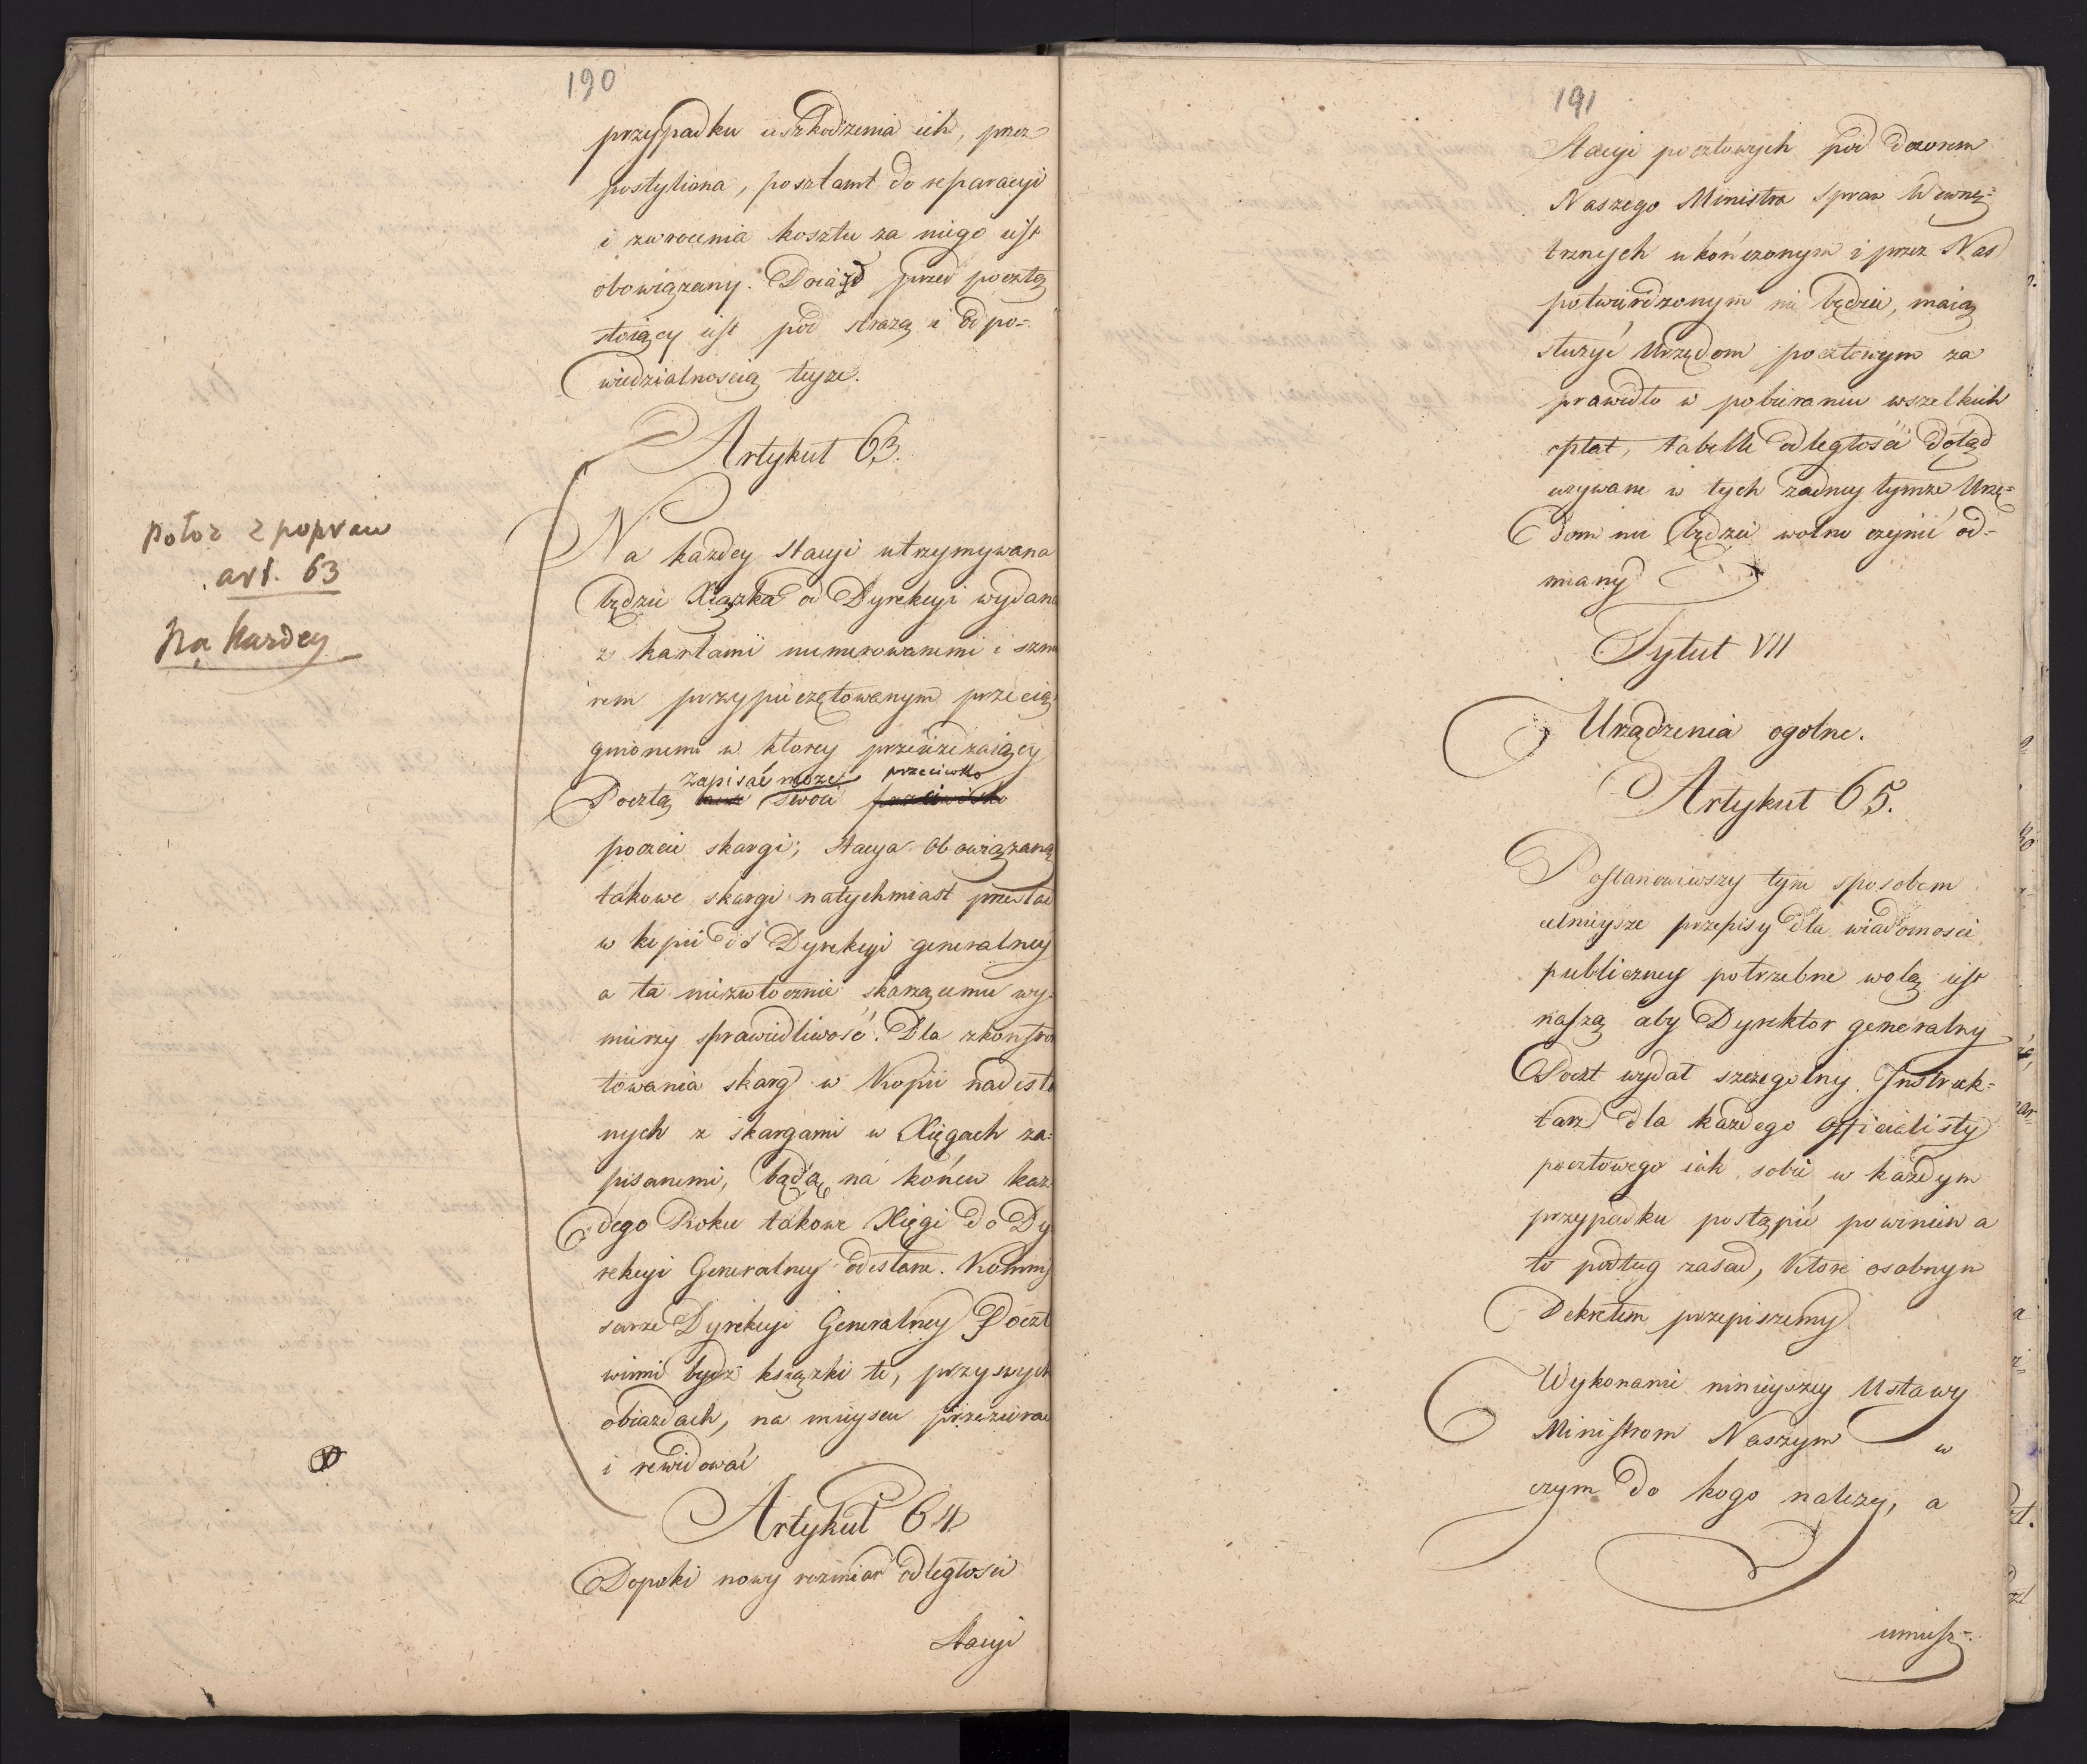 190
przypadku uszkodzenia ich, przez
postyliona, posztamt do reparacyi
i zwrocenia kosztu za niego iest
obowiązany. Doiazd przed pocztą
stoiący iest pod strażą i odpo=
wiedzialnoscią teyze.
Artykuł 63.
Na kazdey Stacyi utrzymywana
będzie Xiązka od Dyrekcyi wydana
z kartami numerowanemi i sznu
rem przypieczętowanym przecią
gnionemi w ktorey przeiezdzaiący
zapisać może przeciwko
Pocztą swoie przeciwko
poczcie skargi; Stacya obowiązana
takowe skargi natychmiast przesłać
w kopii do Dyrekcyi generalney
a ta niezwłocznie skarzącemu wy-
mierzy sprawiedliwość. Dla zkontro
lowania skarg w Kopii nadesła
nych z skargami w Xięgach za=
pisanemi, bądą na końcu każ
dego Roku takowe Xięgi do Dy
rekcyi Generalney odesłane. Kommis
sarze Dyrekcyi Generalney Poczt
winni bydz książki te, przy swych
obiazdach, na mieyscu przezierać
i rewidować
Artykuł 64
Dopoki nowy rozmiar odległosci
Stacyi
połoz z popraw
art. 63
Na kazdey
191
Stacyi pocztowych pod dozorem
Naszego Ministra Spraw Wewnę=
trznych ukończonym i przez Nas
potwierdzonym nie będzie, maią
służyć Urzędom pocztowym za
prawidło w pobieraniu wszelkich
opłat, tabelle odległości dotąd
uzywane w tych zadney tymże Urzę=
dom nie będzie wolno czynić od=
miany
Tytuł VII
Urządzenia ogolne.
Artykuł 65.
Postanowiwszy tym sposobem
celnieysze przepisy dla wiadomosci
publiczney potrzebne wolą iest
naszą aby Dyrektor generalny
Poczt wydał szczegolny Instruk=
tarz dla każdego officialisty
pocztowego iak sobie w każdym
przypadku postąpić powinien a
to podług zasad, które osobnym
Dekretem przepiszemy
Wykonanie ninieyszey Ustawy
Ministrom Naszym w
czym do kogo należy, a
umiesz=